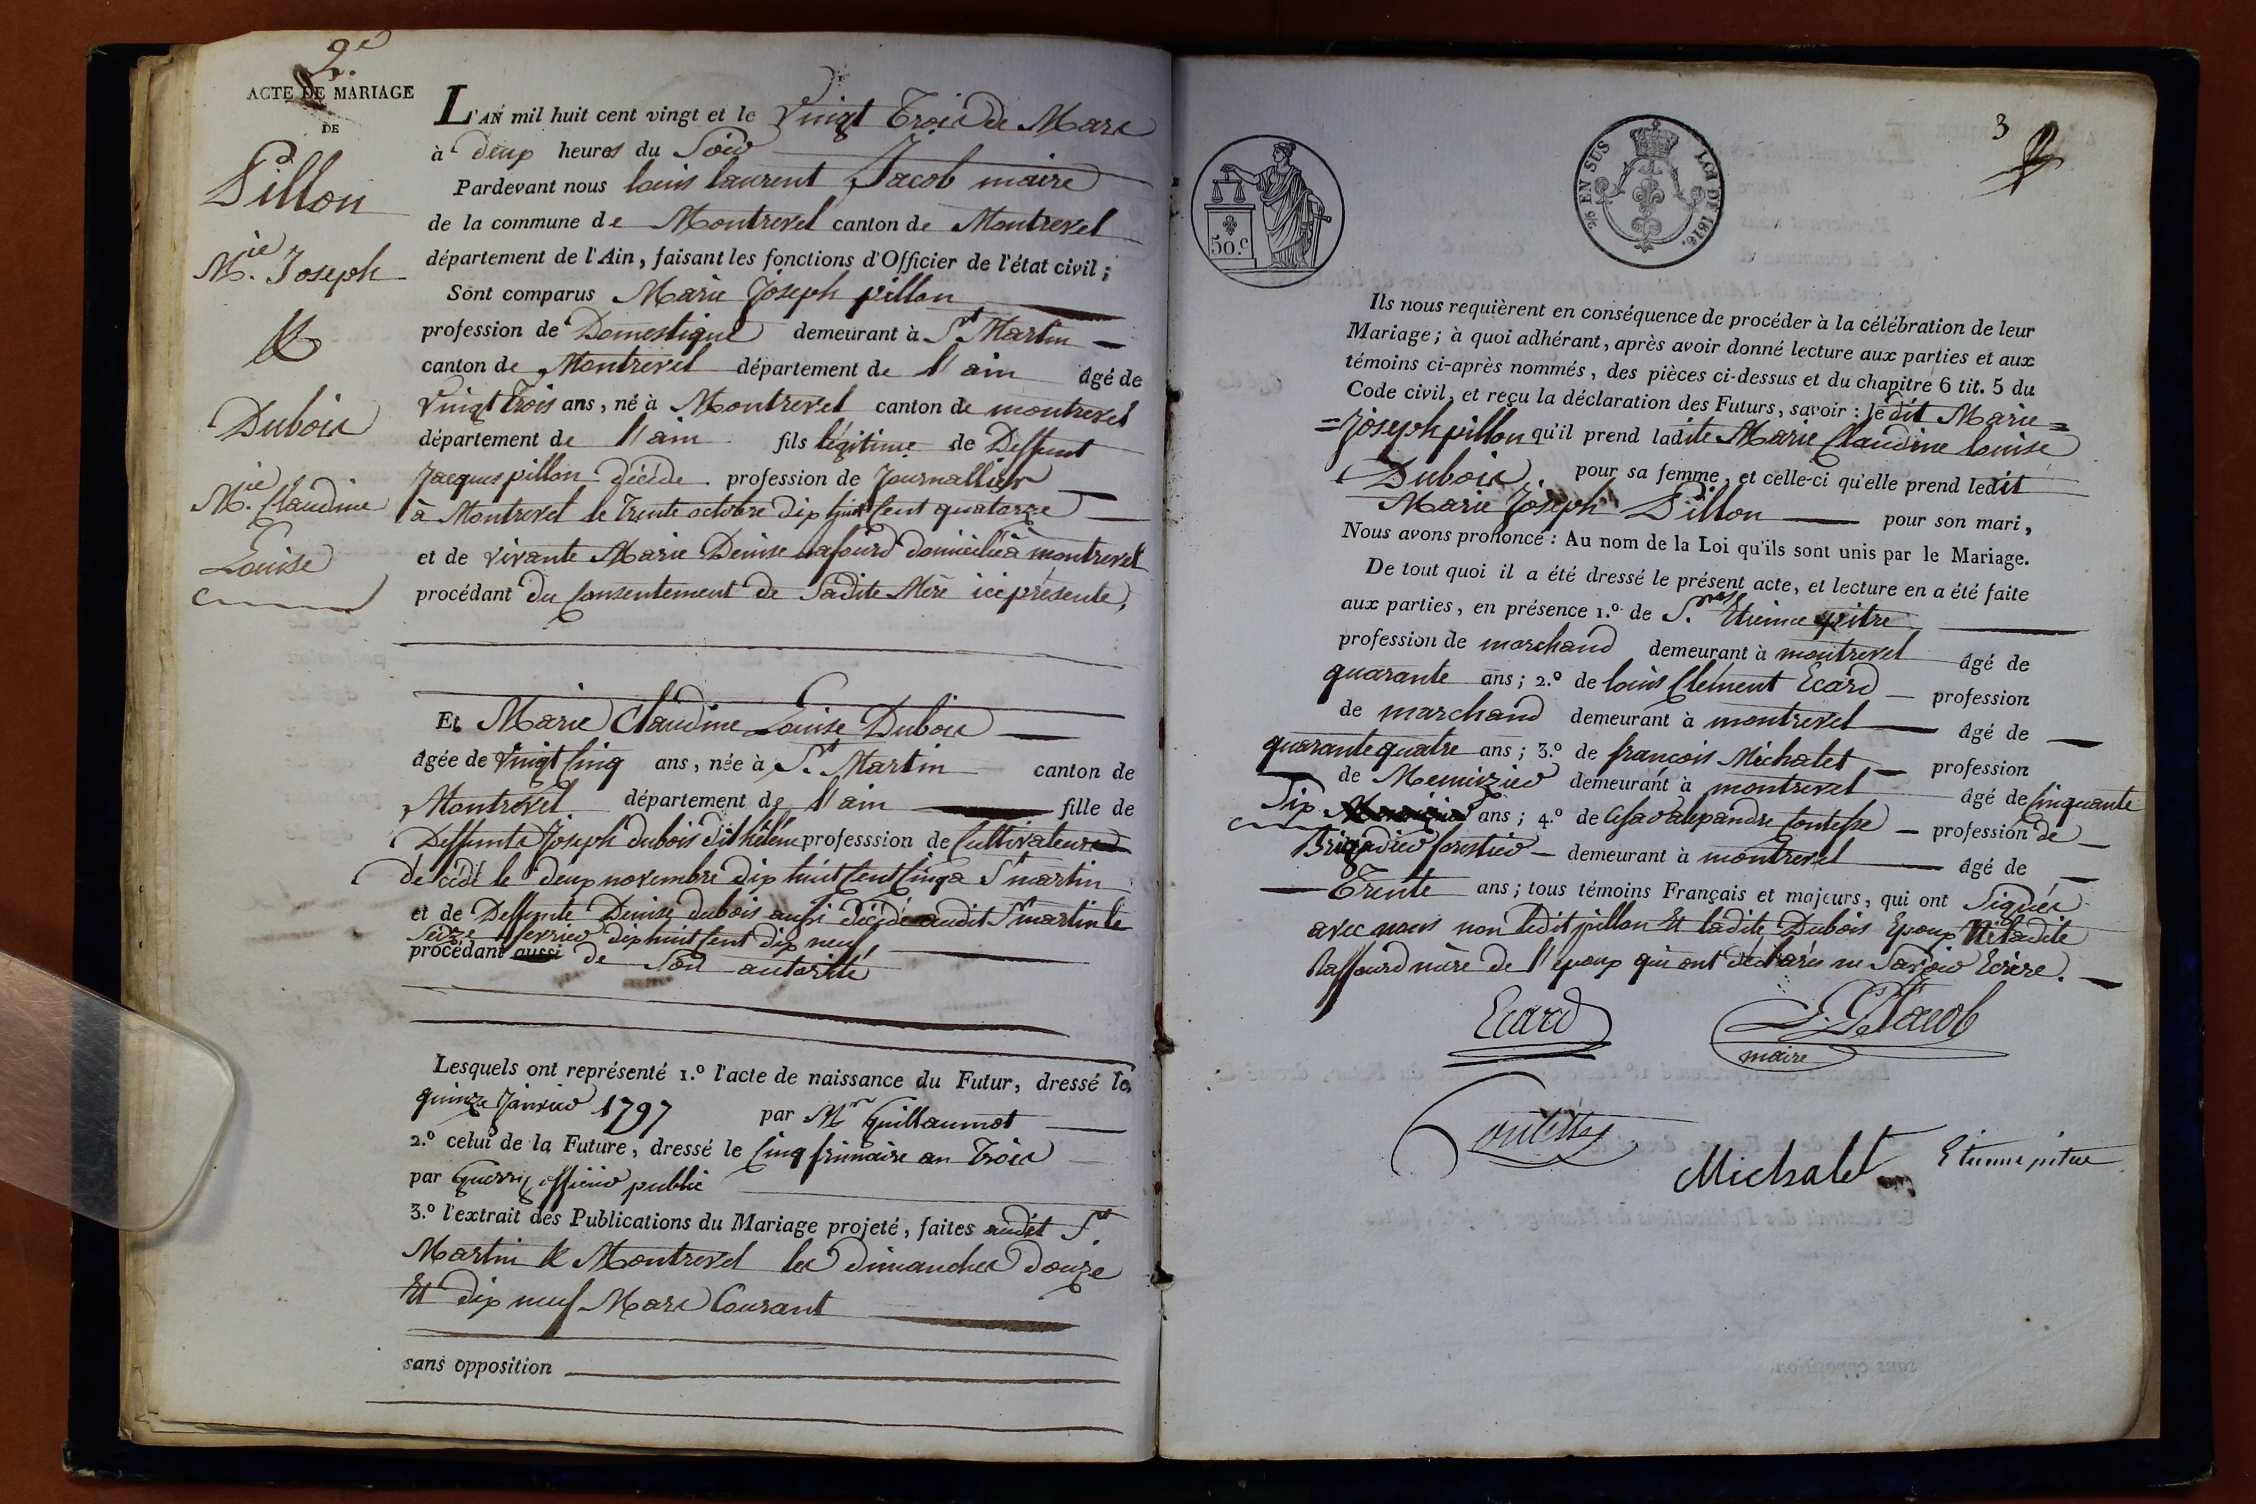 2e
ACTE DE MARIAGE
DE
Pillon
Mie. Joseph
&
Dubois
Mie. Claudine
Louise
L'AN mil huit cent vingt et le Vingt Trois de Mars
à deux heures du Soir
Pardevant nous louis laurent Jacob maire
de la commune de Montrevel canton de Montrevel
département de l'Ain, faisant les fonctions d'Officier de l'état civil;
Sont comparus Marie Joseph pillon
profession de Domestique demeurant à St Martin
canton de Montrevel département de l'ain âgé de
Vingt Trois ans, né à Montrevel canton de montrevel
département de l'ain fils légitime de Deffunt
Jacques pillon décédé profession de Journallier
à Montrevel le Trente octobre dix huit Cent quatorze
et de vivante Marie Denise Laffourd domiciliée à montrevel
procédant du Consentement de Sadite Mère ici présente,
Et Marie Claudine Louise Dubois
âgée de Vingt Cinq ans, née à St. Martin canton de
Montrevel département de l'ain fille de
Deffunts Joseph dubois dit hélène professsion de Cultivateurs
décédé le deux novembre dix huit Cent Cinq a St martin
et de Deffunte Denise dubois aussi décédé audit St martin le
Seize fevrier dix huit Cent dix neuf
procédant aussi de Son autorité
Lesquels ont représenté 1.º l'acte de naissance du Futur, dressé le
quinze Janvier 1797 par Mr Guillaumot
2.º celui de la Future, dressé le Cinq frimaire an Trois
par officier public
3.º l'extrait des Publications du Mariage projeté, faites audit St.
Martin & Montrevel les dimanches Douze
Et dix neuf Mars Courant
sans opposition
50.c
25 EN SUS
LOI DE 1816.
3
Ils nous requièrent en conséquence de procéder à la célébration de leur
Mariage; à quoi adhérant, après avoir donné lecture aux parties et aux
témoins ci-après nommés, des pièces ci-dessus et du chapitre 6 tit. 5 du
Code civil, et reçu la déclaration des Futurs, savoir: le dit Marie =
= Joseph pillon qu'il prend ladite Marie Claudine Louise
Dubois. pour sa femme, et celle-ci qu'elle prend ledit
Marie Joseph Pillon pour son mari,
Nous avons prononcé: Au nom de la Loi qu'ils sont unis par le Mariage.
De tout quoi il a été dressé le présent acte, et lecture en a été faite
aux parties, en présence 1.º de Srs. Etienne pitre
profession de marchand demeurant à montrevel âgé de
quarante ans; 2.º de louis Clément Ecard profession
de marchand demeurant à montrevel âgé de
quarante quatre ans; 3.º de francois Michalet profession
de Menuizier demeurant à montrevel âgé de Cinquante
Six ans; 4.º de Cesar alexandre Contesse profession de
Brigadier forestier demeurant à montrevel âgé de
Trente ans; tous témoins Français et majeurs, qui ont Signés
avec nous non ledit pillon Et ladite Dubois Epoux Ni ladite
Laffourd mère de l'époux qui ont déclarés ne Savoir Ecrire.
Ecard
L. L. Jacob
maire
Contesse
Michalet
Etienne pitre